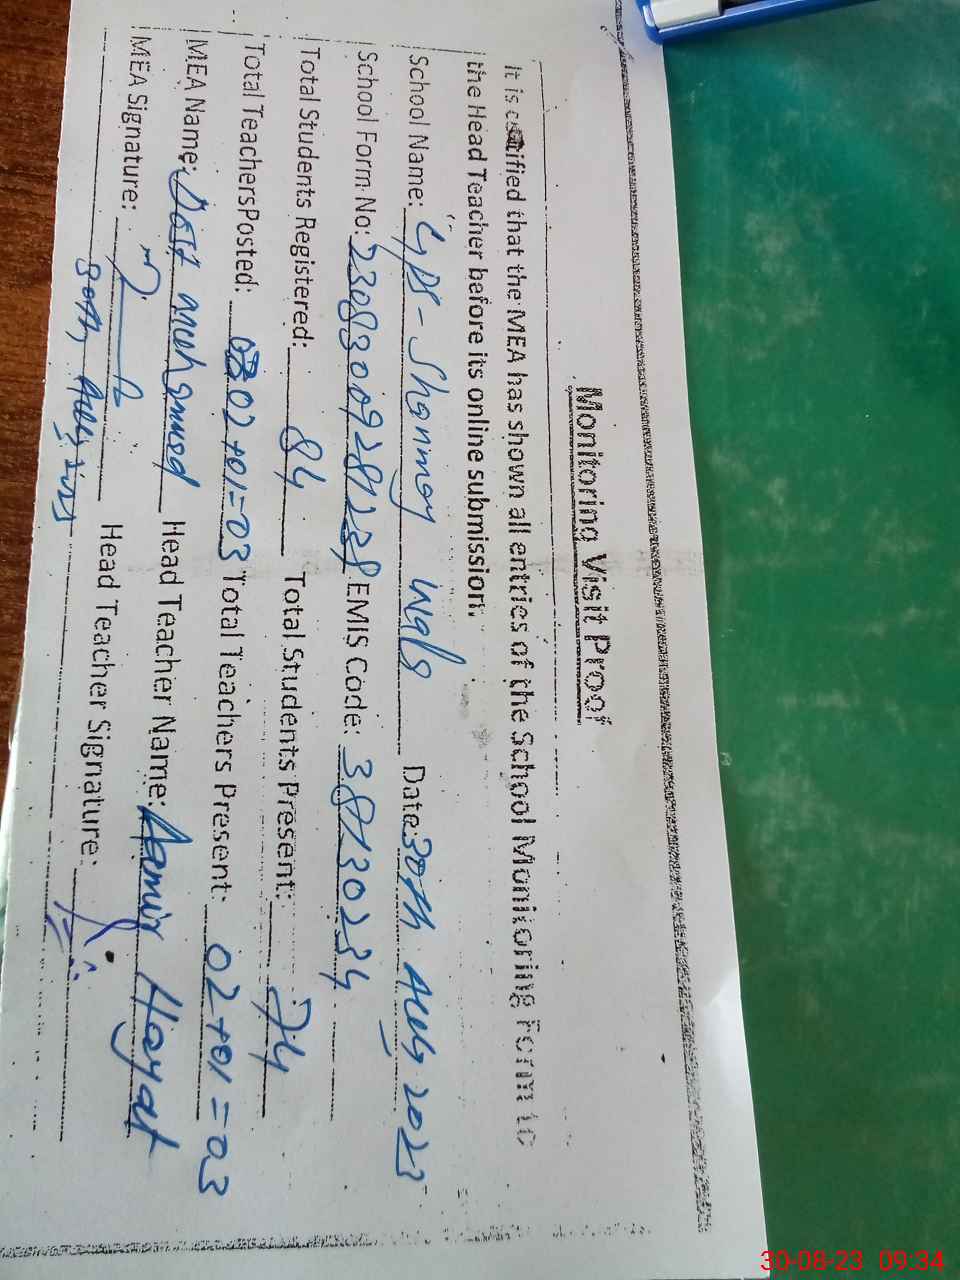 Monitoring Visit Proof
It is certified that the MEA has shown all entries of the School Monitoring Form to
the Head Teacher before its online submission.
School Name: GPS - Shanmgy Wala Date: 30th Aug 2023
School Form No: 23083009281238 EMIS Code: 38130234
Total Students Registered: 84 Total Students Present: 74
Total Teachers Posted: 02+01=03 Total Teachers Present: 02+01=03
MEA Name: Dost Muhammad Head Teacher Name: Aamir Hayat
MEA Signature: Head Teacher Signature:
30th Aug 2023
30-08-23 09:34